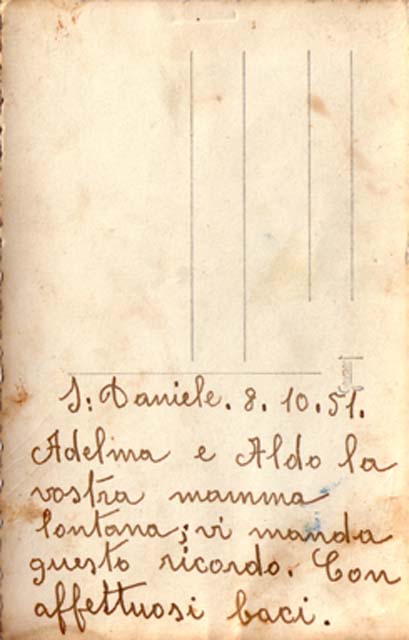 S: Daniele. 8. 10. 51.
Adelma e Aldo la
vostra mamma
lontana; vi manda
questo ricordo. Con
affettuosi baci.